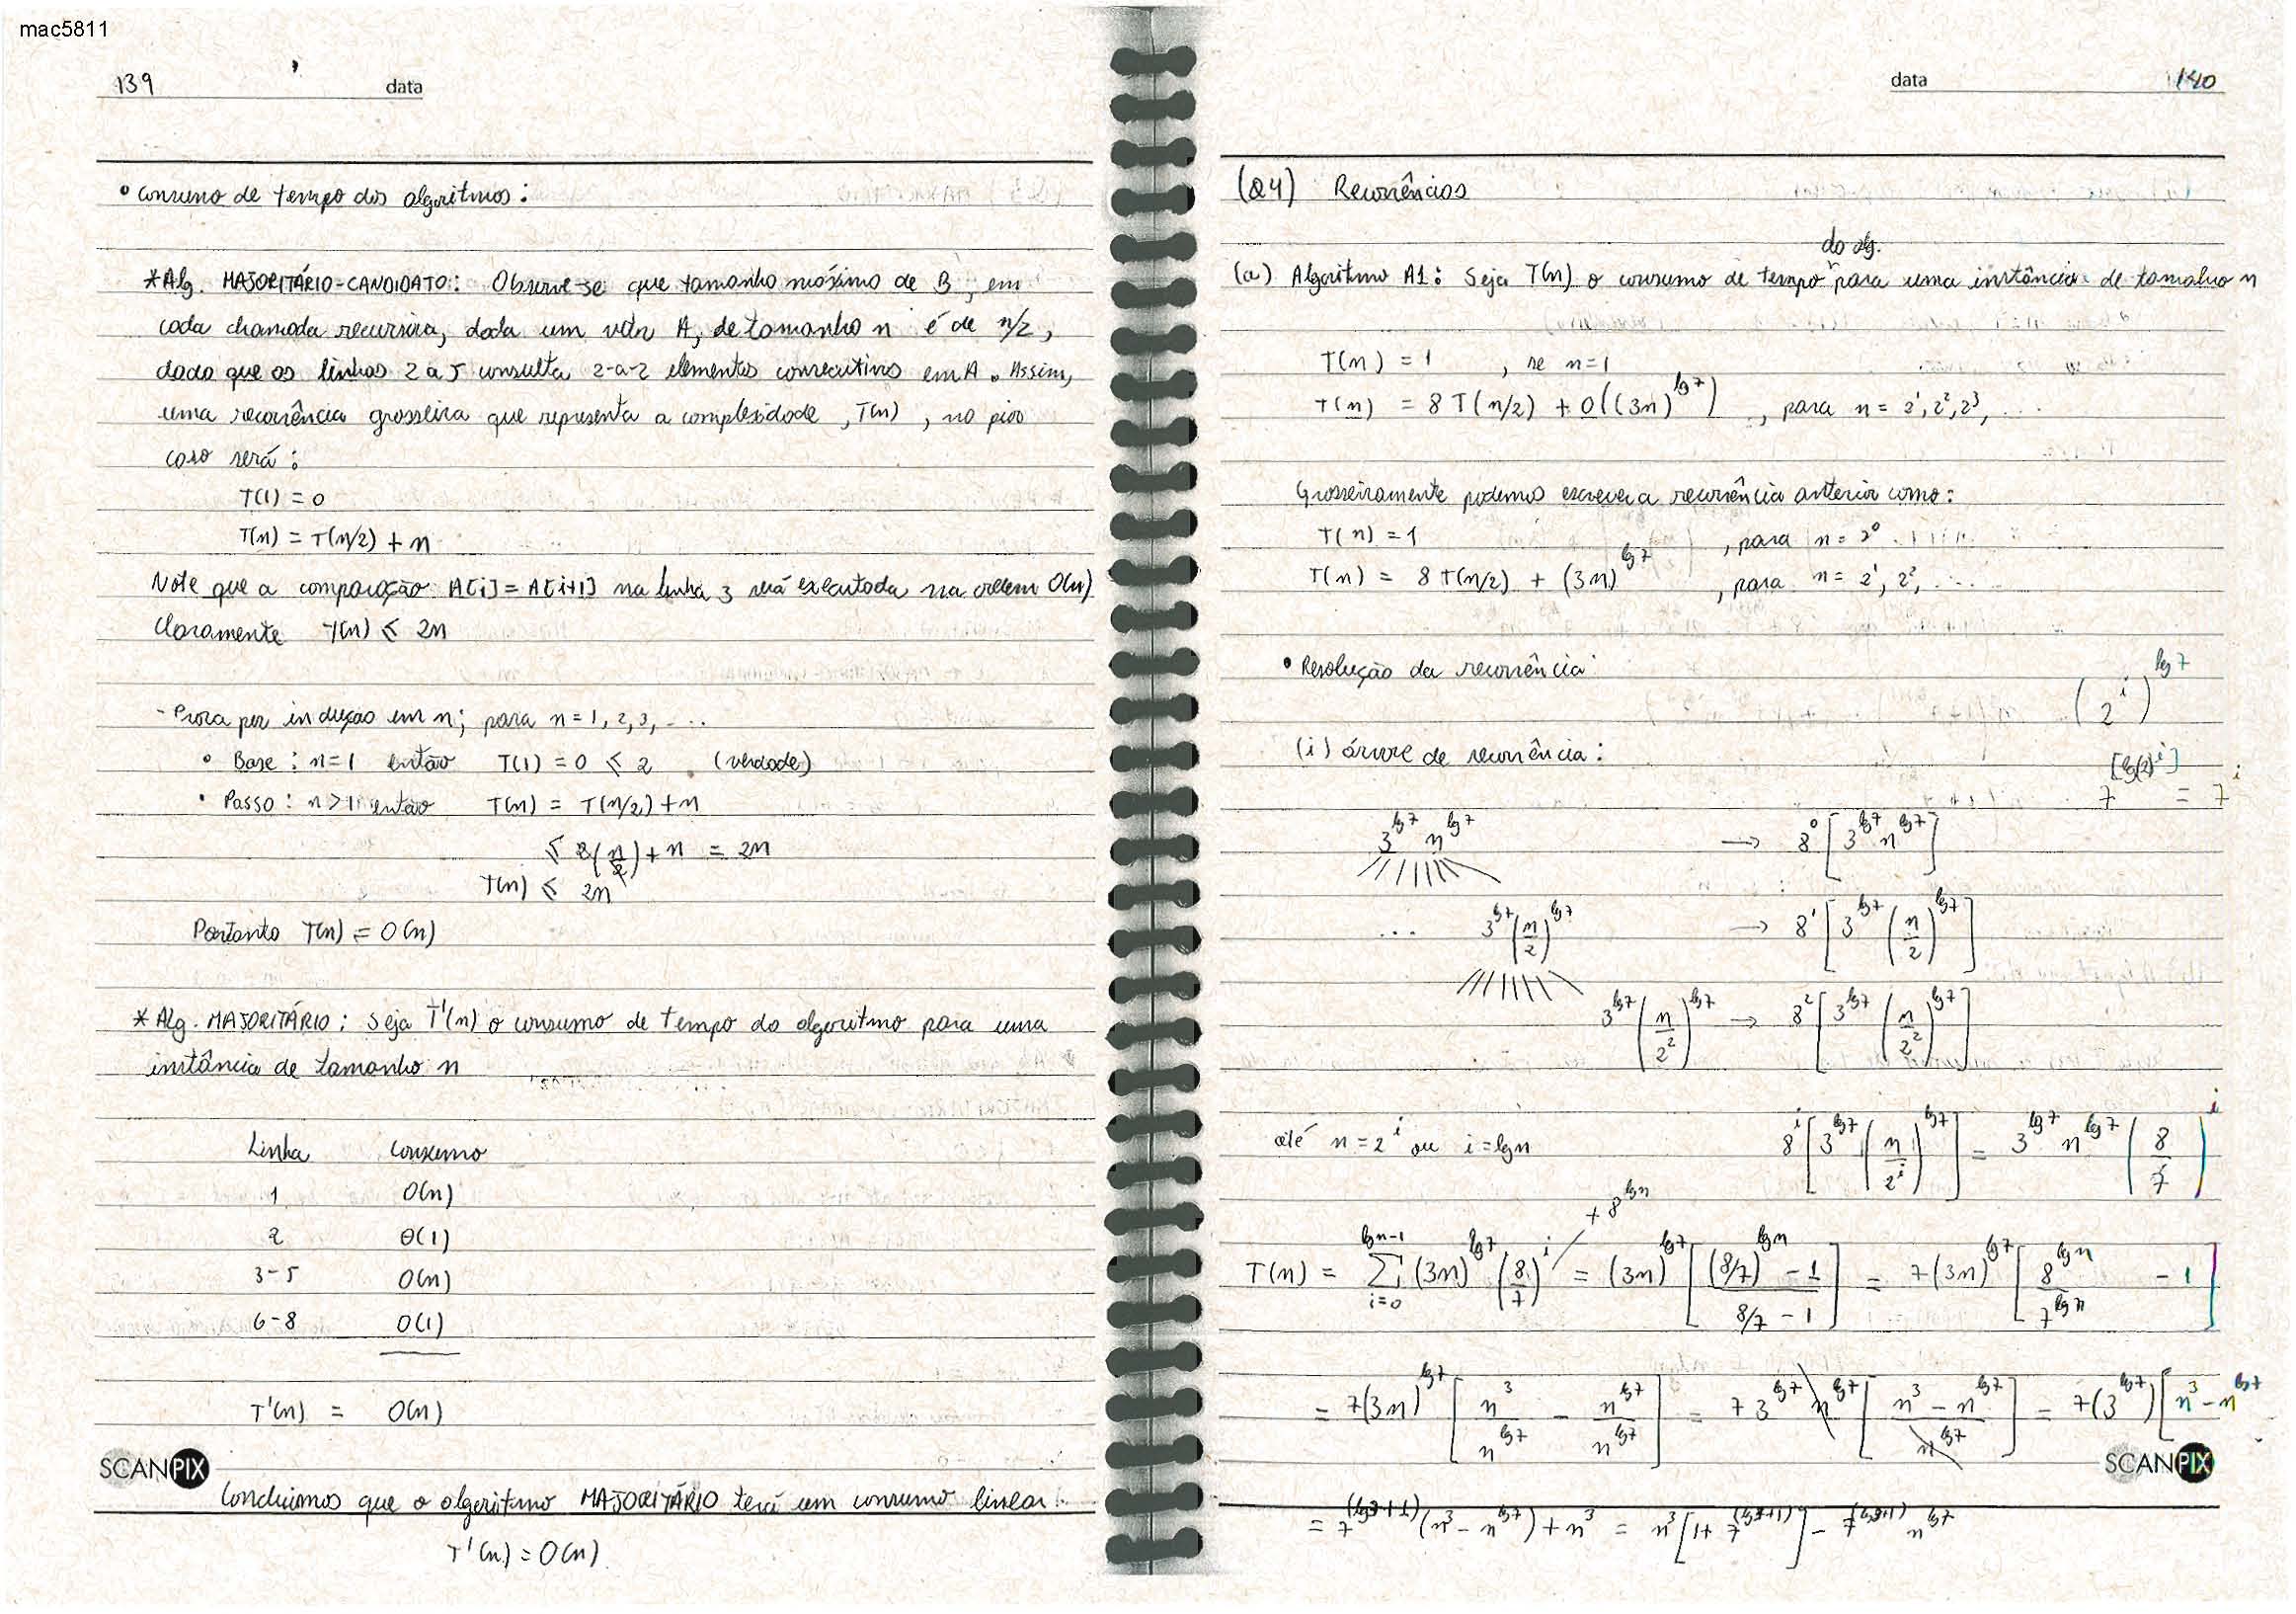 mac5811
139 data
• Consumo de tempo dos algoritmos:
*Alg. MAJORITÁRIO-CANDIDATO: Observe-se que tamanho máximo de B, em
cada chamada recursiva, dada um vetor A, de tamanho n é de n/2,
dado que as linhas 2 a 5 consulta 2-a-2 elementos consecutivos em A. Assim,
uma recorrência grosseira que representa a complexidade, T(n), no pior
caso será:
T(1) = 0
T(n) = T(n/2) + n
Note que a comparação A[i] = A[i+1] na linha 3 será executada na ordem O(n)
Claramente T(n) ≤ 2n
- Prova por indução em n; para n = 1, 2, 3, ...
• Base: n=1 então T(1) = 0 ≤ 2. (verdade)
• Passo: n>1 então T(n) = T(n/2) + n
≤ 2(n/2) + n = 2n
T(n) ≤ 2n
Portanto T(n) = O(n)
*Alg. MAJORITÁRIO: Seja T'(n) o consumo de tempo do algoritmo para uma
instância de tamanho n
Linha Consumo
1 O(n)
2 Θ(1)
3-5 O(n)
6-8 O(1)
T'(n) = O(n)
SCANPIX
Concluímos que o algoritmo MAJORITÁRIO terá um consumo linear.
T'(n) = O(n)
data 140
(Q4) Recorrências
do alg.
(a) Algoritmo A1: Seja T(n) o consumo de tempo para uma instância de tamanho n
T(n) = 1 , se n=1
T(n) = 8T(n/2) + O((3n)^lg7) , para n = 2^1, 2^2, 2^3, ...
Grosseiramente podemos escrever a recorrência anterior como:
T(n) = 1 , para n = 2^0
T(n) = 8T(n/2) + (3n)^lg7 , para n = 2^1, 2^2, ...
• Resolução da recorrência: (2^i)^lg7
(i) árvore de recorrência: 7^[lg(2)^i] = 7^i
3^lg7 n^lg7 → 8^0 [3^lg7 n^lg7]
... 3^lg7 (n/2)^lg7 → 8^1 [3^lg7 (n/2)^lg7]
3^lg7 (n/2^2)^lg7 → 8^2 [3^lg7 (n/2^2)^lg7]
até n = 2^i ou i = lg n 8^i [3^lg7 (n/2^i)^lg7] = 3^lg7 n^lg7 (8/7)^i
+ 8^lgn
T(n) = ∑_{i=0}^{lgn-1} (3n)^lg7 (8/7)^i = (3n)^lg7 [((8/7)^lgn - 1)/(8/7 - 1)] = 7(3n)^lg7 [8^lgn/7^lgn - 1]
= 7(3n)^lg7 [n^3/n^lg7 - n^lg7/n^lg7] = 7 3^lg7 n^lg7 [(n^3 - n^lg7)/n^lg7] = 7(3^lg7)[n^3 - n^lg7
SCANPIX
= 7^(lg3+1) (n^3 - n^lg7) + n^3 = n^3 [1 + 7^(lg3+1)] - 7^(lg3+1) n^lg7